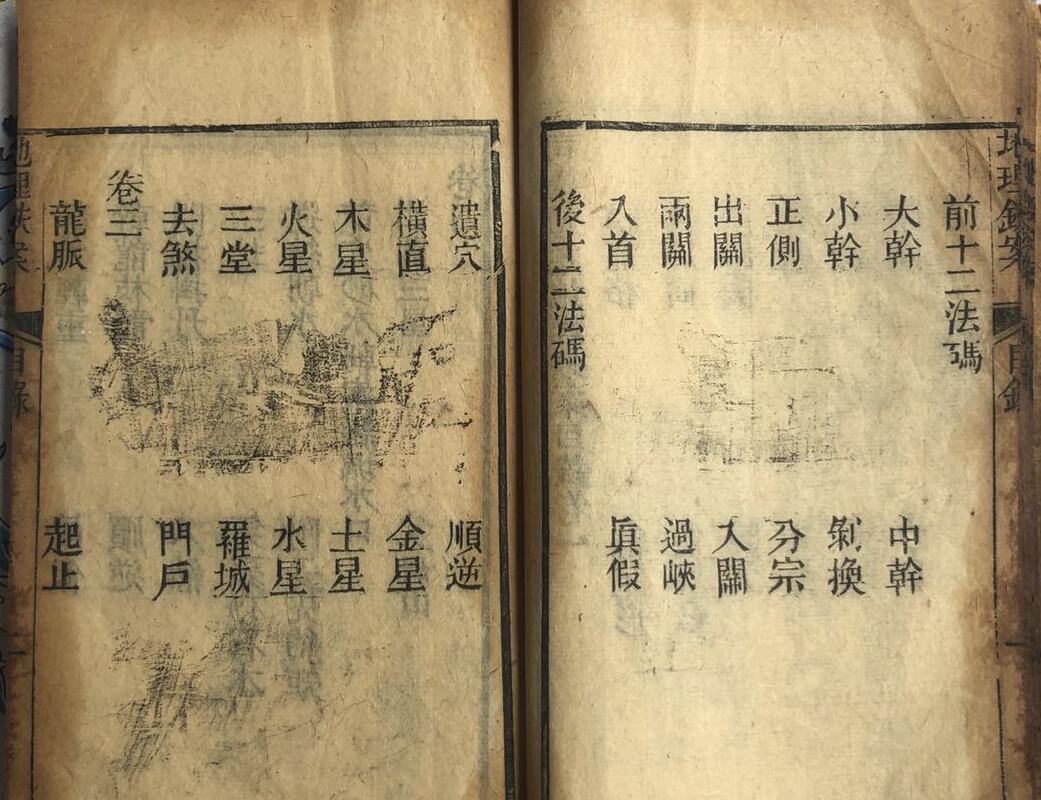 前十二法碼
大幹 中幹
小幹 剝換
正側 分宗
出關 入關
兩關 過峽
入首 眞假
後十二法碼
遺穴 順逆
橫直 金星
木星 土星
火星 水星
三堂 羅城
去煞 門戶
卷三
龍脈 起止
目錄